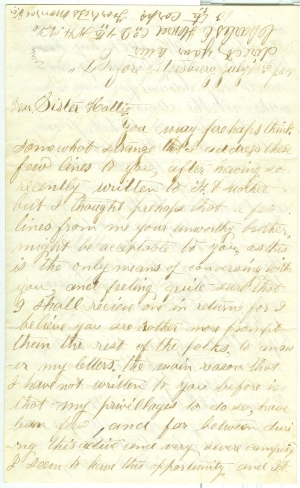 Direct your
Before Petersburg July
Dear Sister Hattie
You may perhaps think
somewhat strange that I address these
few lines to you, after having so
recently written to H. & Mother
but I thought prehaps that a few
lines from me your unworthy brother,
might be acceptable to you, as this
is the only means of conversing with
you, and feeling quite sure that
I shall recieve one in return for I
believe you are rather more prompt
than the rest of the folks, to answ
er my letters, the main reason that
I have not written to you before is
that my privillages to do so, have
been few, and far between duri
ng this active and very severe campaign
I seem to have this opportunity and It